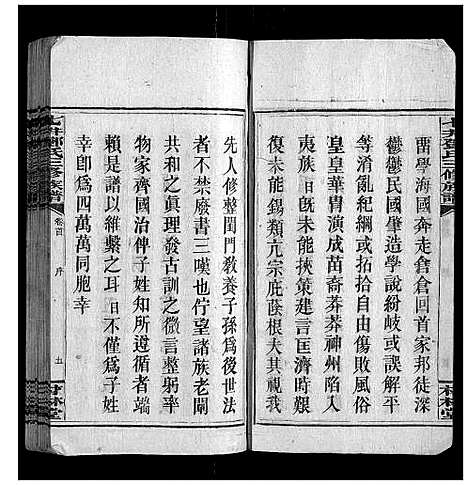 西學海國奔走倉倉回首家邦徒深
鬱鬱民國肇造學說紛岐或誤解平
等淆亂紀綱或拓拾自由傷敗風俗
皇皇華胄演成苗裔莽莽神州陷入
夷族日未能挾策建言匡濟時艱
復未能錫類亢宗庇蔭根夫其視我
先人修整閨門敎養子孫爲後世法
者不禁廢書三嘆也佇望諸族老闡
共和之眞理發古訓之微言整躬率
物家齊國治俾子姓知所遵循者端
賴是譜以維繫之耳日不僅爲子姓
幸卽爲四萬萬同胞幸
氏三修族譜
卷首
序
五